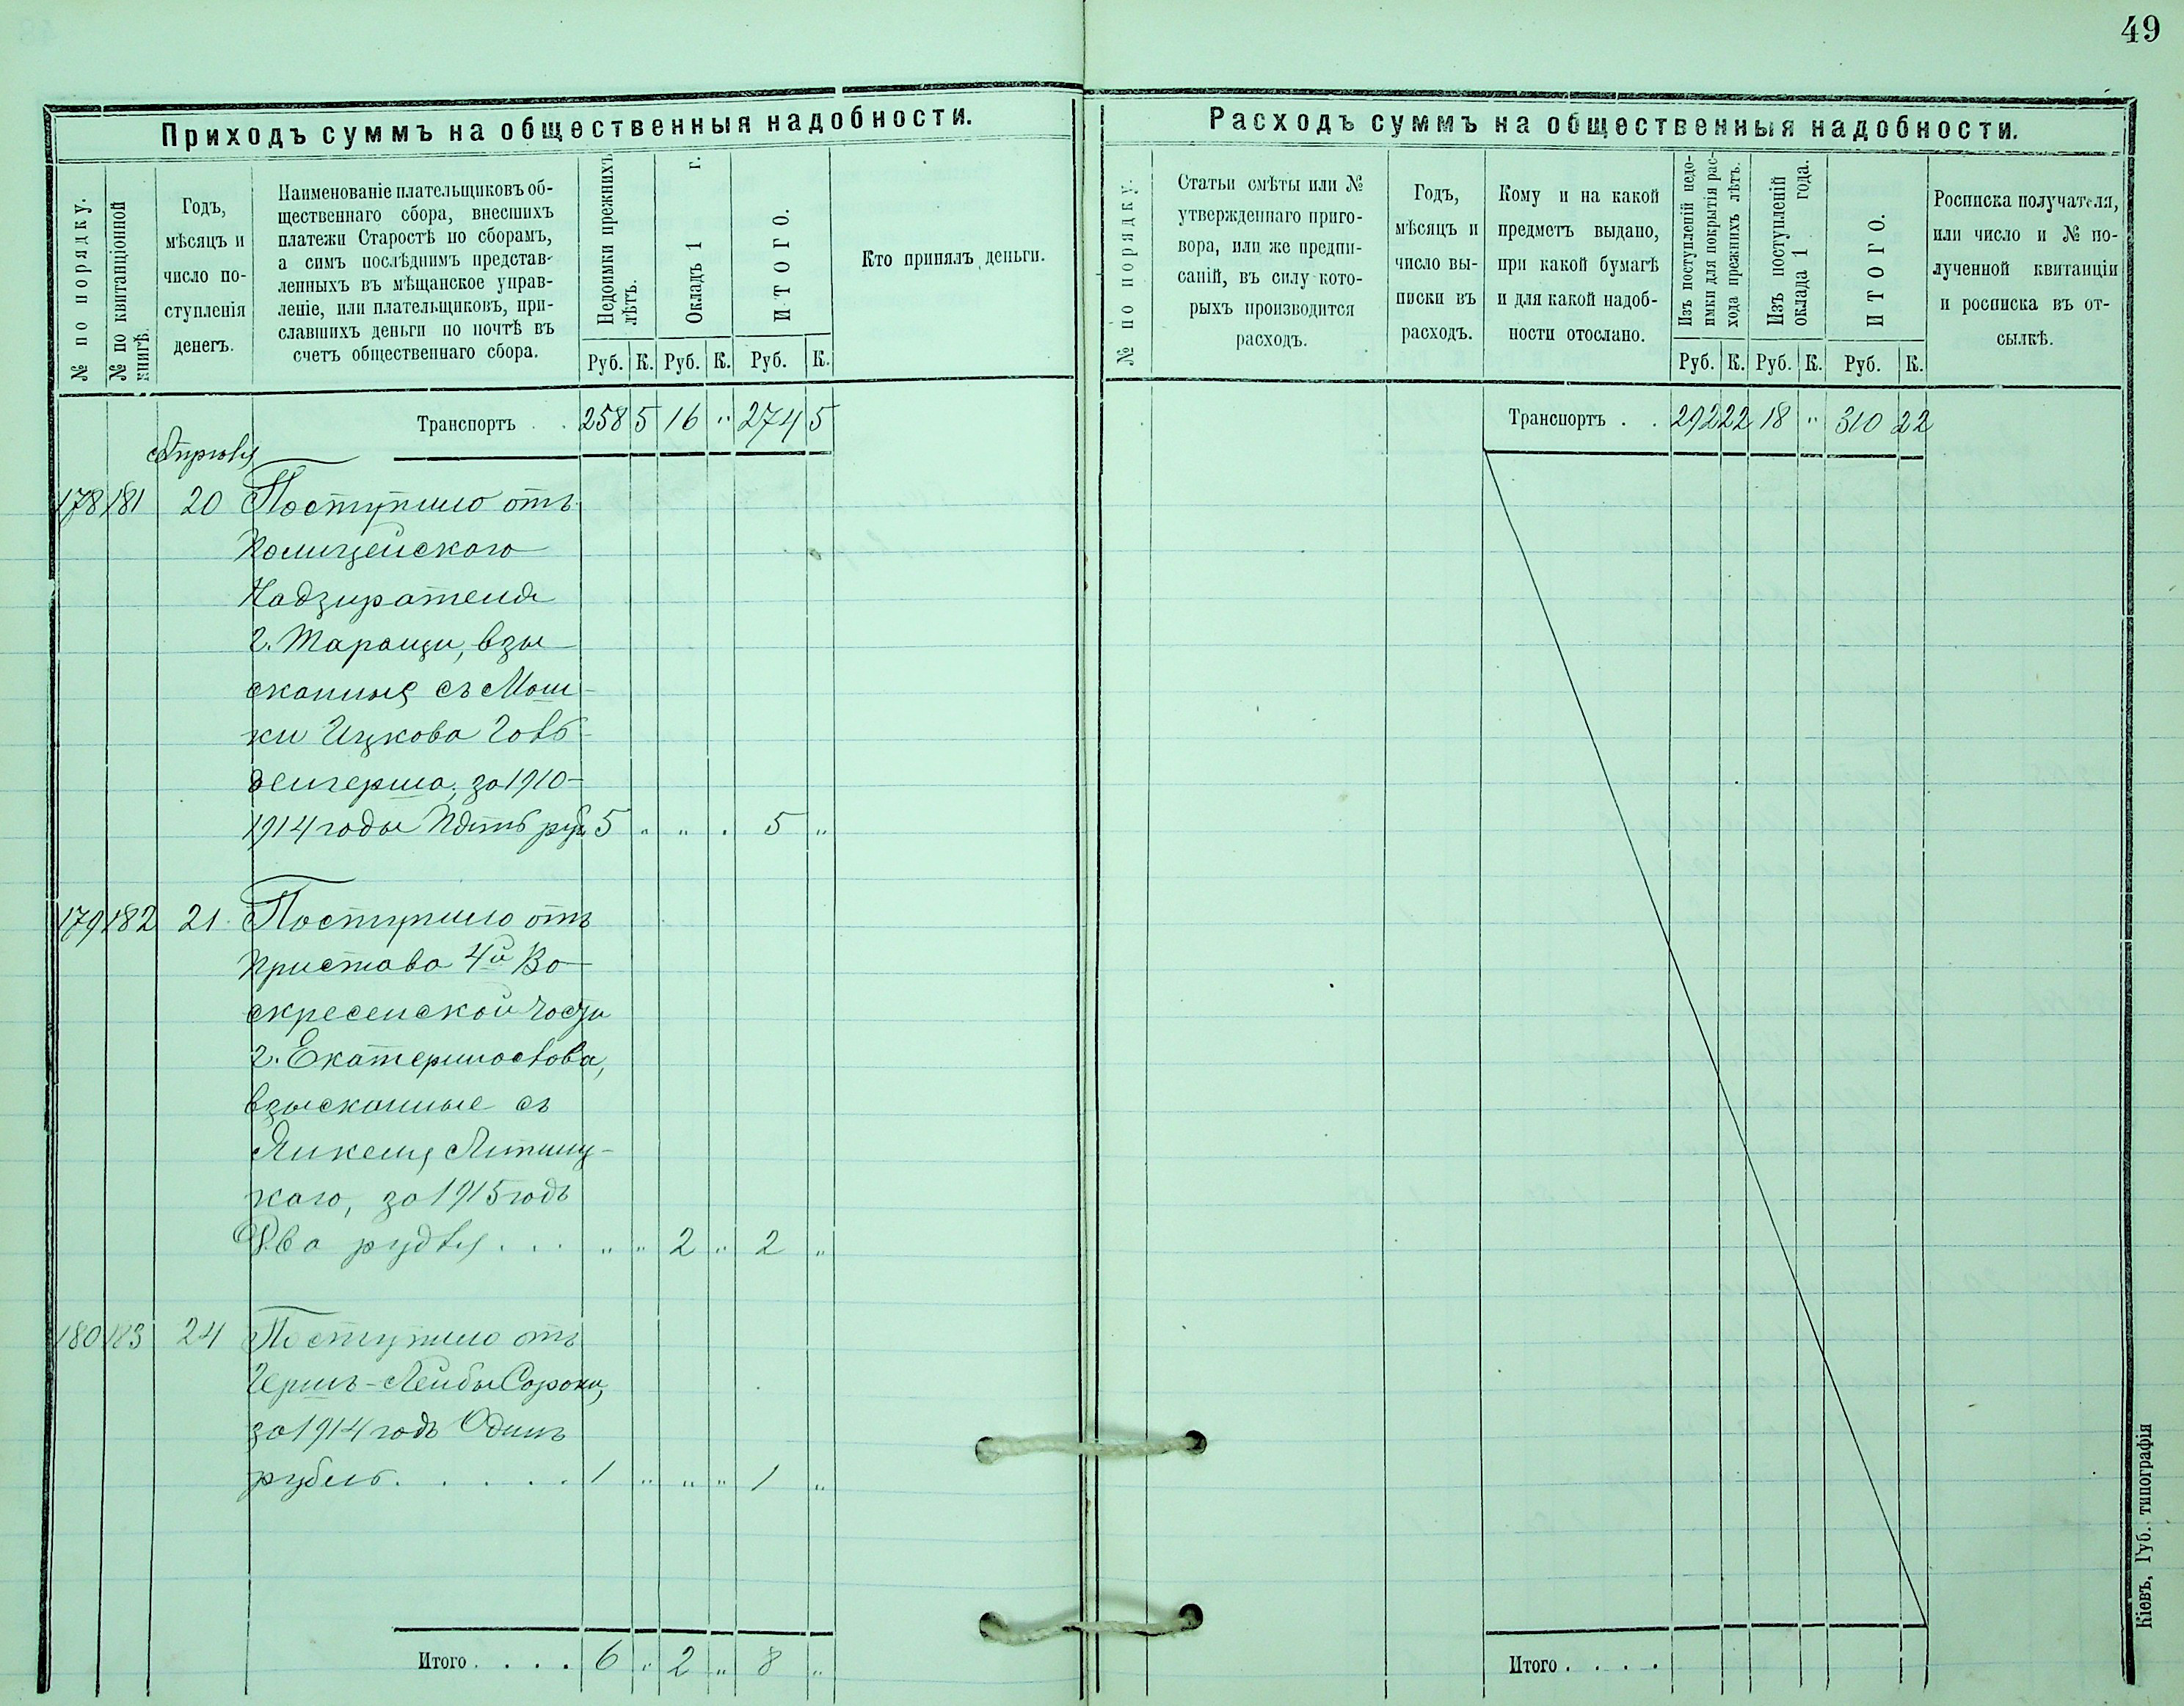 49
Приходъ суммъ на общественныя надобности.
№ по порядку.
№ по квитанціонной
книгѣ.
Годъ,
мѣсяцъ и
число по-
ступленія
денегъ.
Наименованіе плательщиковъ об-
щественнаго сбора, внесшихъ
платежи Старостѣ по сборамъ,
а симъ послѣднимъ представ-
ленныхъ въ мѣщанское управ-
леніе, или плательщиковъ, при-
славшихъ деньги по почтѣ въ
счетъ общественнаго сбора.
Недоимки прежнихъ
лѣтъ.
Окладъ 1 г.
ИТОГО.
Руб. К. Руб. К. Руб. К.
Кто принялъ деньги.
Транспортъ . . 258 5 16 " 274 5
Апрѣля
178 181 20 Поступило отъ
Полицейскаго
Надзирателя
г. Таращи, взы-
сканныя съ Мош-
ки Ицкова
за 1910-
1914 годы Пять руб. 5 " " . 5 "
179 182 21 Поступило отъ
Пристава 4й Во-
скресенской части
г. Екатеринослава,
взысканные съ
Янкеля Липниц-
каго, за 1915 годъ
Два рубля . . . " " 2 " 2 "
180 183 24 Поступило отъ
Гершъ-Лейбы Сороки,
за 1914 годъ Одинъ
рубль . . . . . 1 " " " 1 "
Итого . . . . 6 " 2 " 8 "
Расходъ суммъ на общественныя надобности.
№ по порядку.
Статьи смѣты или №
утвержденнаго приго-
вора, или же предпи-
саній, въ силу кото-
рыхъ производится
расходъ.
Годъ,
мѣсяцъ и
число вы-
писки въ
расходъ.
Кому и на какой
предметъ выдано,
при какой бумагѣ
и для какой надоб-
ности отослано.
Изъ поступленій недо-
имки для покрытія рас-
хода прежнихъ лѣтъ.
Изъ поступленій
оклада 1 года.
ИТОГО.
Руб. К. Руб. К. Руб. К.
Росписка получателя,
или число и № по-
лученной квитанціи
и росписка въ от-
сылкѣ.
Транспортъ . . 292 22 18 " 310 22
Итого . . . .
Кіевъ, Губ. типографія